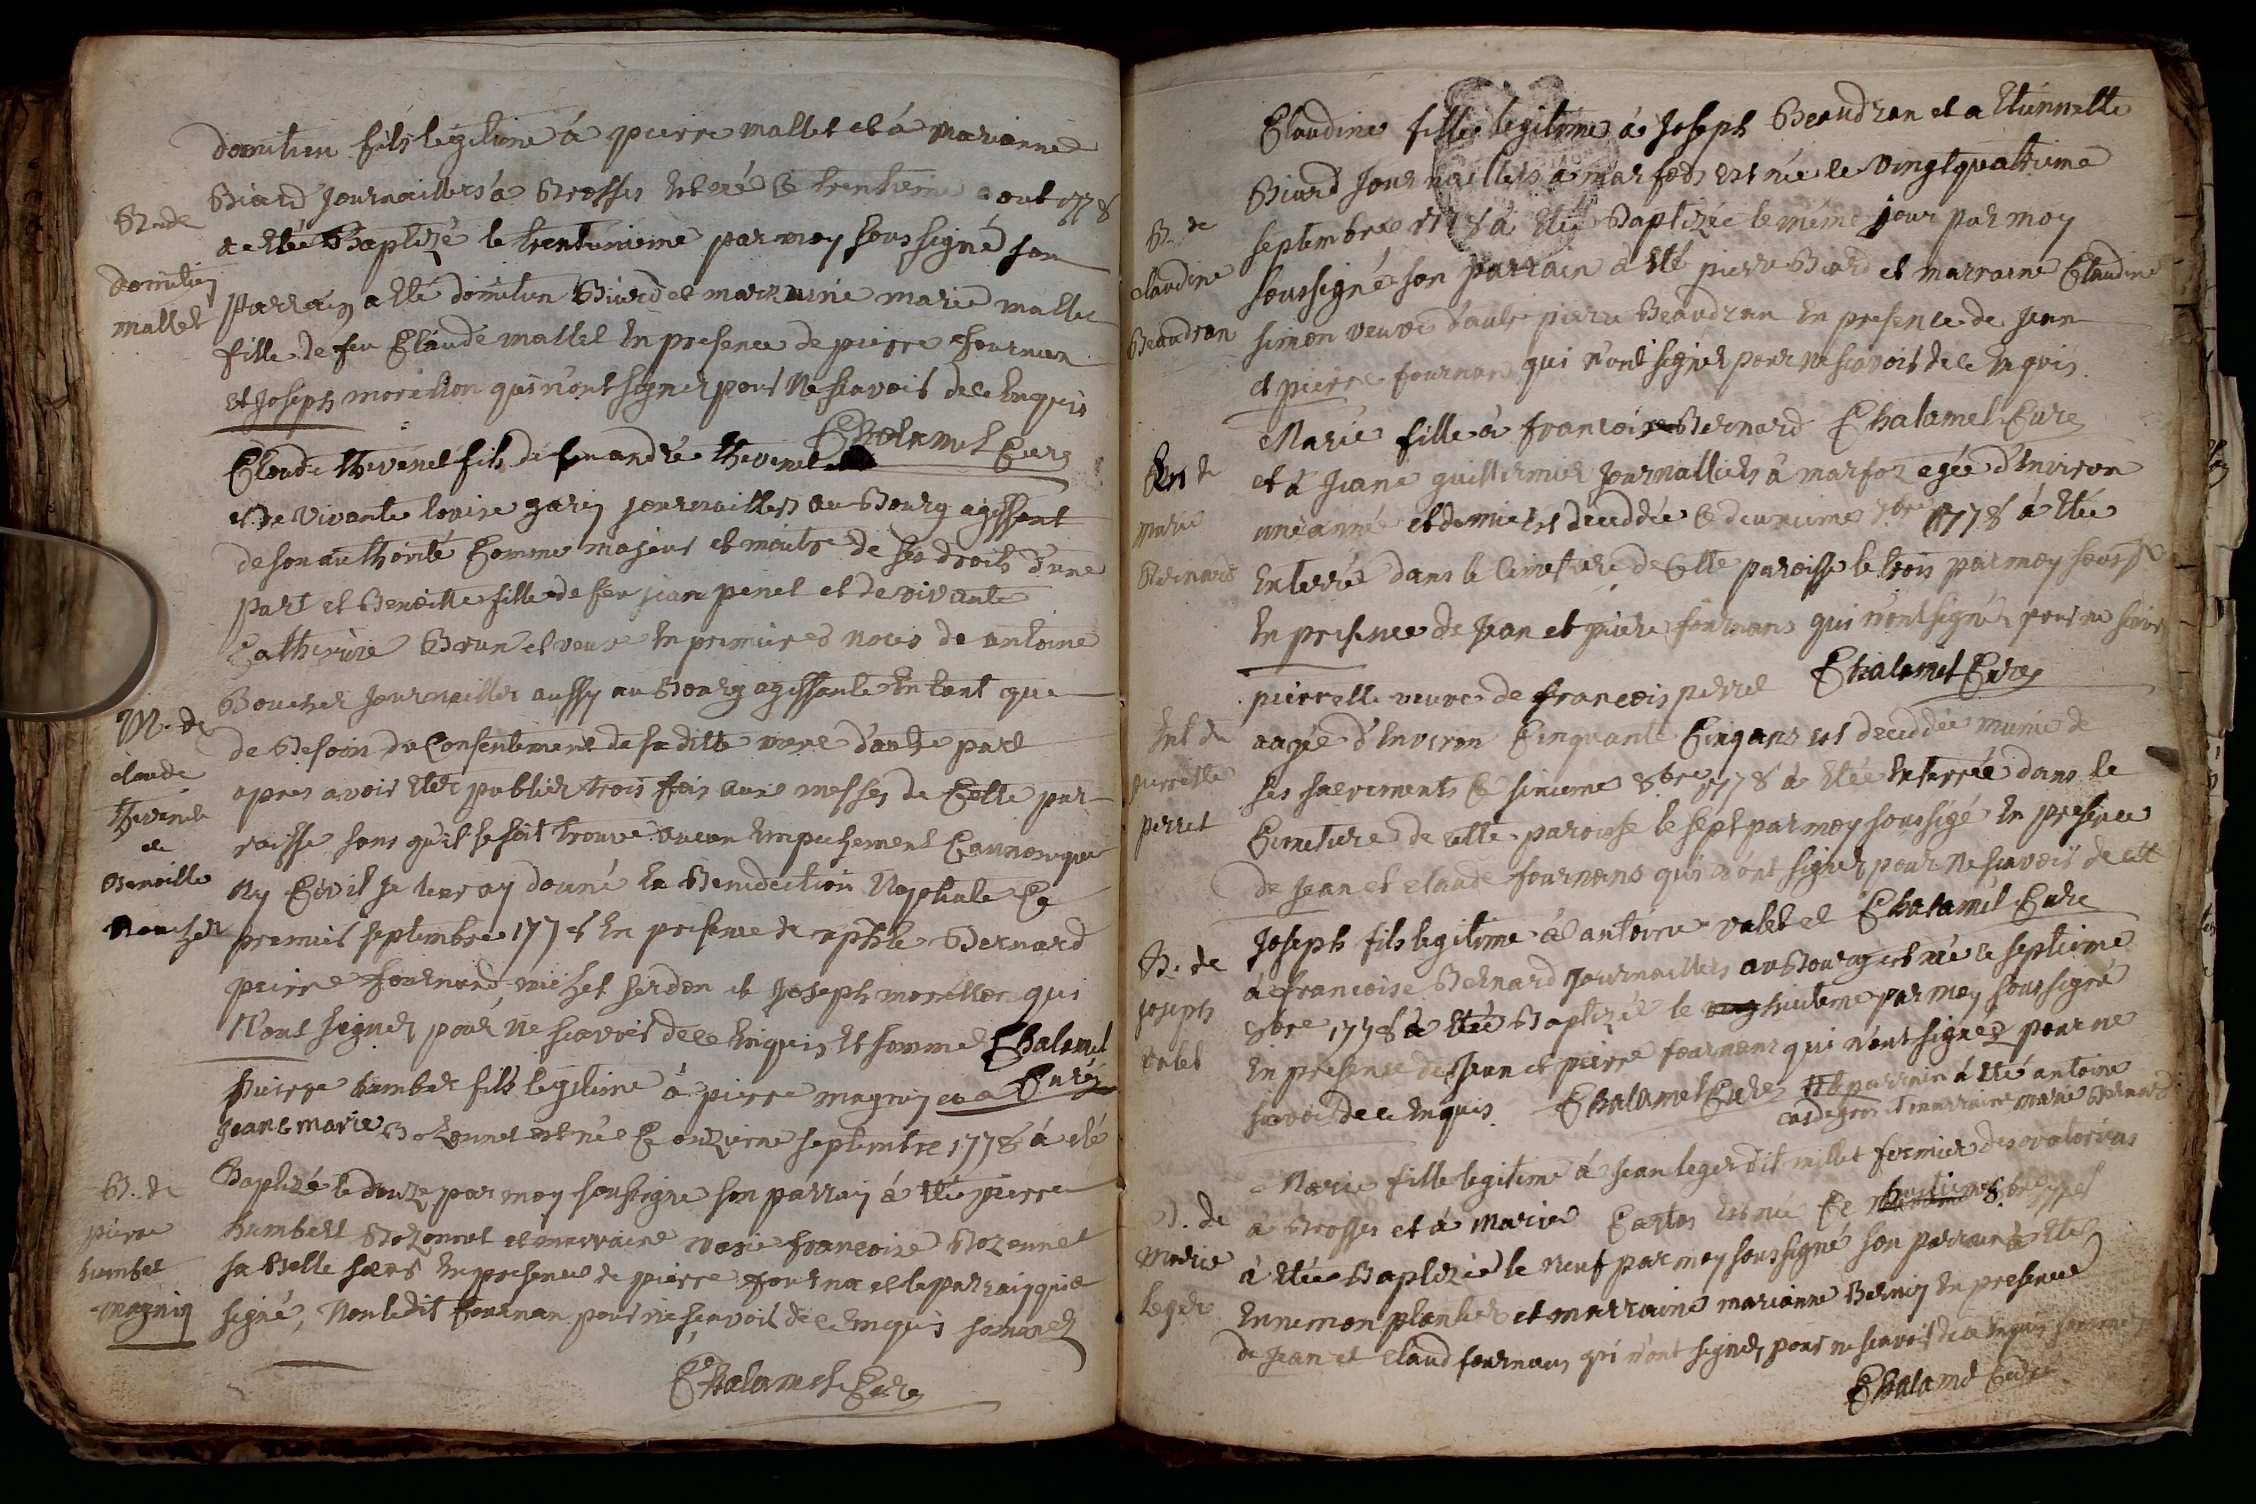 domitien fils legitime à pierre mallet et à marianne
Biard Journailliers à Brosses est né le trentieme aout 1778
a eté Baptizé le trentunieme par moy soussigné son
parrain a eté domitien Biard et marraine marie mallet
fille de feu Claude mallet En presence de pierre fournan
et Joseph morellon qui n'ont signer pour ne scavoir de ce Enquis
Chalamel Curé
B. de
domitien
mallet
Claude thevenet fils de feu andré thevenet
et de vivante louise garin journaillier au Bourg agissant
de son authorité Comme majeur et maitre de ses droits d'une
part et Benoitte fille de feu jean penet et de vivante
Catherine Brun et veuve En premieres noces de antoine
Boucher Journaillier aussy au Bourg agissante En tant que
de Besoin du Consentement de sa ditte mere d'autre part
apres avoir eter publier trois fois aux messes de Cette par-
roisse sans qu'il se soit trouvé aucun Empechement Cannonique
Ny Civil je leur ay donné la Benediction Nuptiale Ce
premier septembre 1778 En presence de Bernard
pierre fournand, michel serdon et Joseph morellon qui
N'ont signer pour ne scavoir de ce Enquis et sommé Chalamel
Curé
M. de
claude
thevenet
et
Benoitte
Boucher
pierre humber fils legitime à pierre magnin et a
jeane marie Bozonnet est né Ce onzieme septembre 1778 à eté
Baptizé le douze par moy soussigné son parrain à eté pierre
humbert Bozonnet et marraine marie francoise Bozonnet
sa Belle soeur En presence de pierre fournan et le parrain qui a
signé, Non ledit fournan pour ne scavoir de ce Enquis sommé
Chalamel Curé
B. de
pierre
humber
magnin
Claudine fille legitime à Joseph Beaudran et a Etiennette
Biard Journailliers à marfoz est née le vingtquatrieme
septembre 1778 à eté Baptizée le même jour par moy
soussigné son parrain a eté pierre Biard et marraine Claudine
simon veuve d'autre pierre Beaudran En presence de Jean
et pierre fournans qui n'ont signer pour ne scavoir de ce Enquis
B. de
claudine
Beaudran
Marie fille à francois Bernard Chalamel Curé
et à Jeane guillermier Journalliers à marfoz agée d'Environ
une année et demie est decedée le deuxieme 8bre 1778 à eté
Enterrée dans le Cimetiere de Cette paroisse le trois par moy souss.
En presence de Jean et pierre fournans qui n'ont signer pour ne scavoir
Chalamel Curé
Ent de
marie
Bernard
pierrette veuve de francois perret
aagée d'Environ Cinquante Cinq ans est decedée munie de
ses sacrements Ce sixieme 8bre 1778 à eté Enterrée dans le
Cimetiere de cette paroisse le sept par moy soussigé En presence
de Jean et claude fournans qui n'ont signer pour ne scavoir de ce
Chalamel Curé
Ent de
pierrette
perret
Joseph fils legitime à antoine valet et
à francoise Bernard Journailliers au Bourg est né le septieme
8bre 1778 à eté Baptizé le huitieme par moy soussigné
En presence de Jean et pierre fournans qui n'ont signer pour ne
scavoir de ce Enquis. Chalamel Curé le parrain à eté antoine
et marraine marie Bernard
B. de
Joseph
valet
Marie fille legitime à Jean leger dit millet fermier des
à Brosses et à Marie Cartos est née Ce huitieme 8bre 1778
à eté Baptizée le neuf par moy soussigné son parrain à eté
Ennemon plantier et marraine marianne Bernin En presence
de Jean et claud fournans qui n'ont signer pour ne scavoir de ce Enquis sommé
Chalamel Curé
B. de
Marie
leger